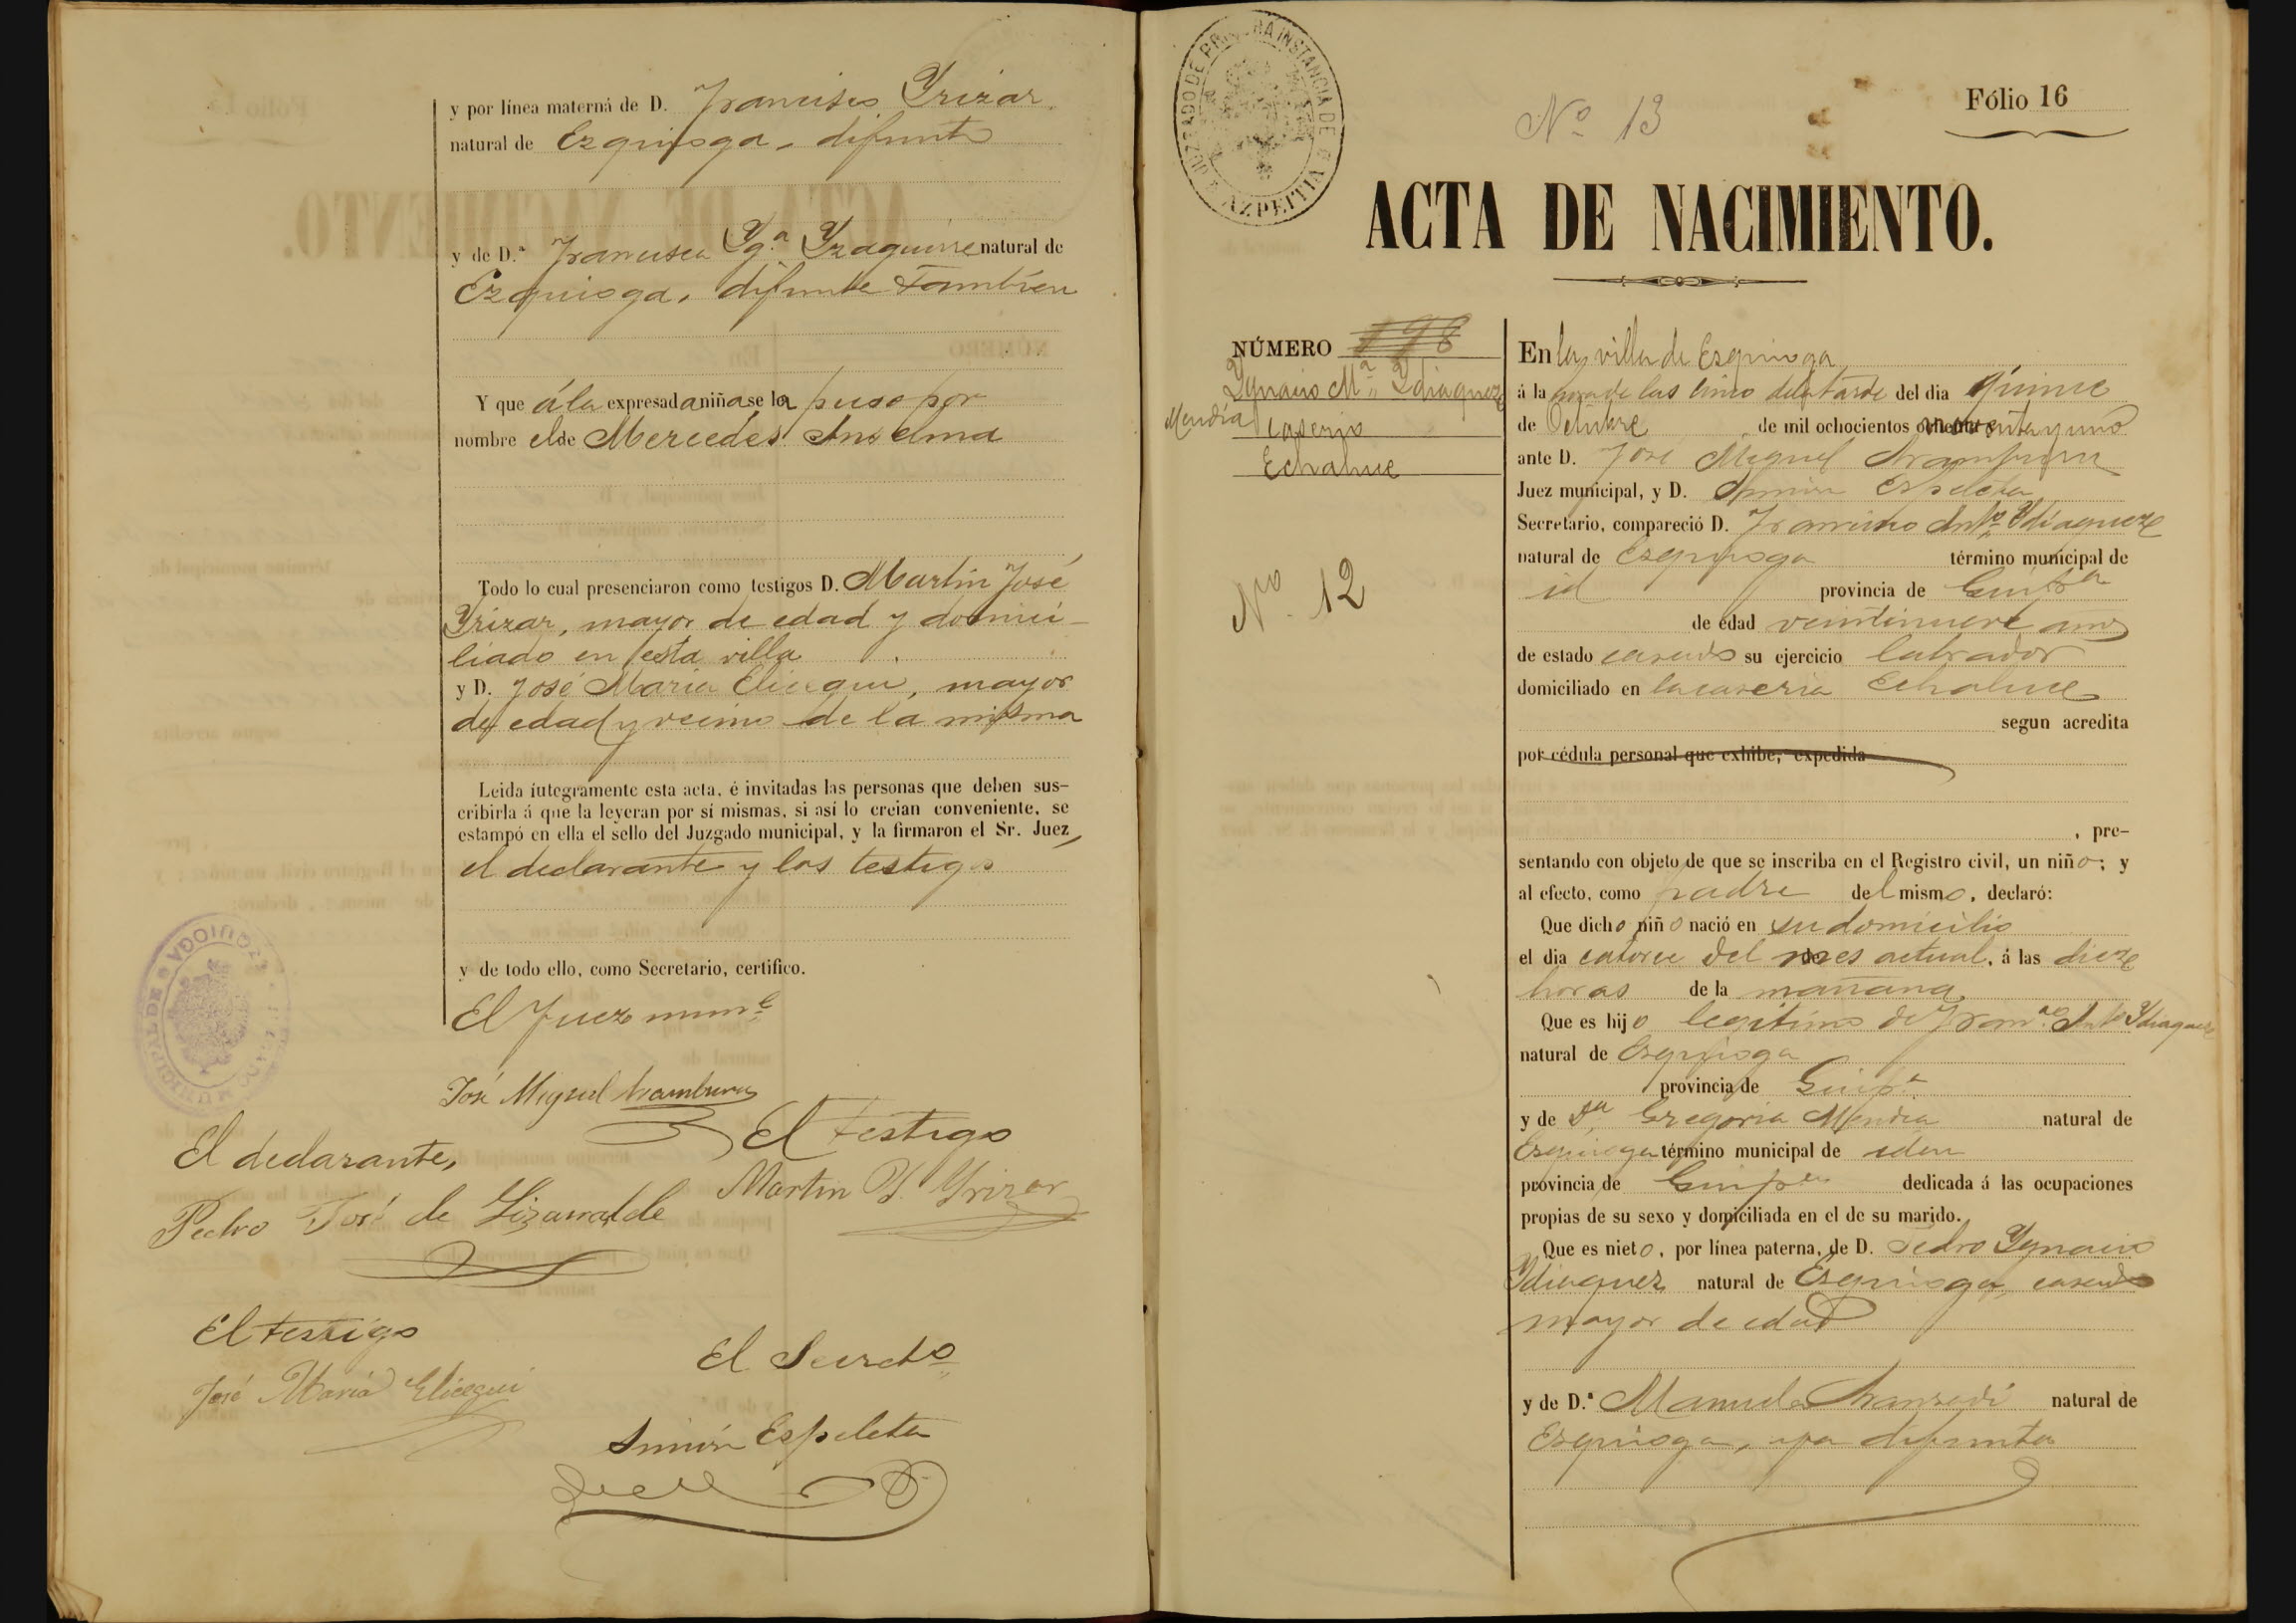 y por línea materna de D. Francisco Yrizar
natural de Ezquioga, difunto
y de D.ª Francisca Yg.ª Yzaguirre natural de
Ezquioga, difunta tambien
Y que á la expresada niña se la puso por
nombre el de Mercedes Anselma
Todo lo cual presenciaron como testigos D. Martin José
Yrizar, mayor de edad y domici-
liado en esta villa
y D. José Maria Elicegui, mayor
de edad y vecino de la misma
Leida íntegramente esta acta, é invitadas las personas que deben sus-
cribirla á que la leyeran por sí mismas, si así lo creian conveniente, se
estampó en ella el sello del Juzgado municipal, y la firmaron el Sr. Juez,
el declarante y los testigos
y de todo ello, como Secretario, certifico.
El Juez mun.l
José Miguel Aramburu
El testigo
Martin J. Yrizar
El declarante,
Pedro José de Lizarralde
El testigo
José Maria Elicegui
El Secret.o
Simón Espeleta
JUZGADO MUNICIPAL DE EZQUIOGA
JUZGADO DE PRIMERA INSTANCIA DE AZPEITIA
Nº 13
Fólio 16
ACTA DE NACIMIENTO.
NÚMERO 198
Ygnacio M.ª Ydiaquez
Mendia
Caserio
Echalue
Nº. 12
En la villa de Ezquioga
á la hora de las cinco de la tarde del dia quince
de Octubre de mil ochocientos noventa y uno
ante D. José Miguel Aramburu
Juez municipal, y D. Simón Espeleta
Secretario, compareció D. Francisco Ant.o Ydiaquez
natural de Ezquioga término municipal de
id provincia de Guip.a
de edad veintinueve años
de estado casado su ejercicio labrador
domiciliado en la caseria Echalue
segun acredita
por cédula personal que exhibe, expedida
, pre-
sentando con objeto de que se inscriba en el Registro civil, un niño; y
al efecto, como padre del mismo, declaró:
Que dicho niño nació en su domicilio
el dia catorce del mes actual, á las diez
horas de la mañana
Que es hijo legítimo de Fran.co Ant.o Ydiaquez
natural de Ezquioga
provincia de Guip.a
y de D.a Gregoria Mendia natural de
Ezquioga término municipal de idem
provincia de Guip.a dedicada á las ocupaciones
propias de su sexo y domiciliada en el de su marido.
Que es nieto, por línea paterna, de D. Pedro Ygnacio
Ydiaquez natural de Ezquioga, casado
mayor de edad
y de D.ª Manuela Aranzadi natural de
Ezquioga, ya difunta